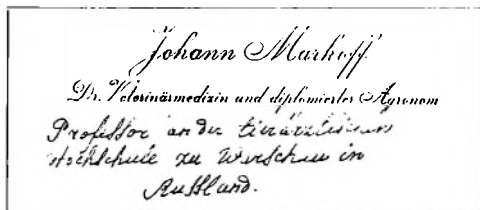 Johann Markoff
Dr. Veterinärmedizin und diplomierter Agronom
Professor an der tierärztlichen
Hochschule zu Warschau in
Russland.